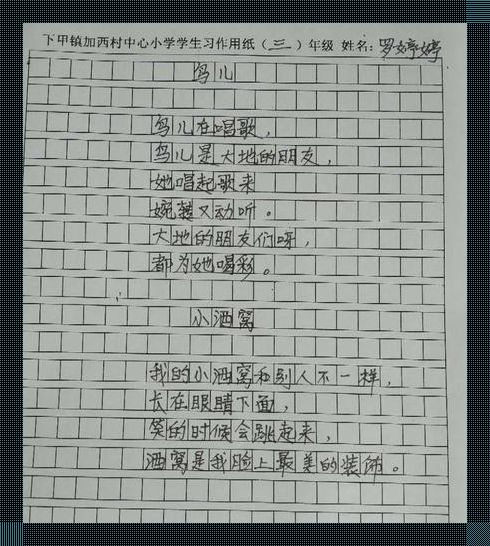 下甲镇加西村中心小学学生习作用纸（三）年级 姓名：罗婷婷
鸟儿
鸟儿在唱歌，
鸟儿是大地的朋友，
她唱起歌来
婉转又动听。
大地的朋友们呀，
都为她喝彩。
小酒窝
我的小酒窝和别人不一样，
长在眼睛下面，
笑的时候会跳起来，
酒窝是我脸上最美的装饰。